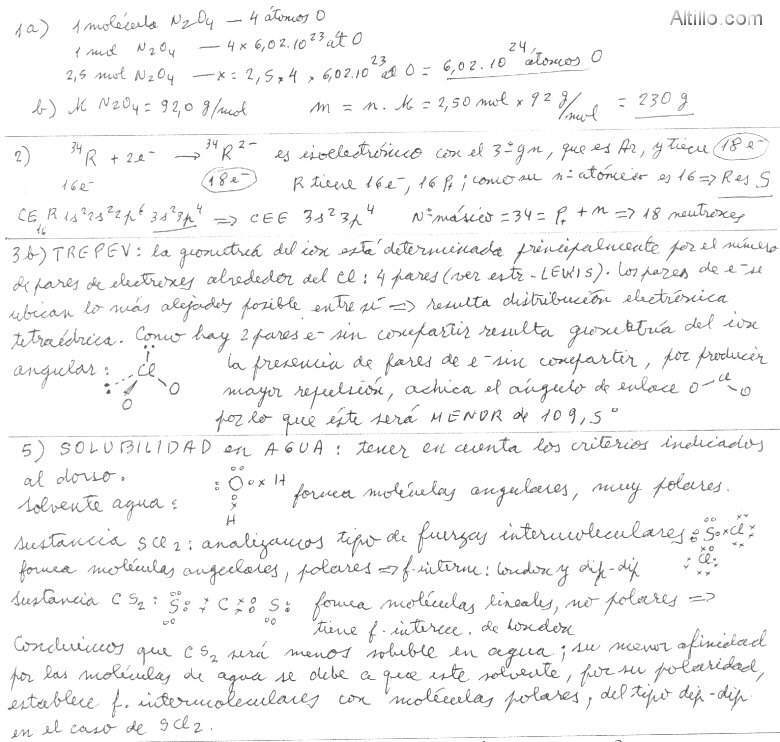 Altillo.com
1a) 1 molécula N₂O₄ — 4 átomos O
1 mol N₂O₄ — 4 × 6,02.10²³ at O
2,5 mol N₂O₄ — x = 2,5 × 4 × 6,02.10²³ at O = 6,02.10²⁴ átomos O
b) M N₂O₄ = 92,0 g/mol m = n. M = 2,50 mol × 92 g/mol = 230 g
2) ³⁴R + 2e⁻ → ³⁴R²⁻ es isoelectrónico con el 3º gn, que es Ar, y tiene 18e⁻
16e⁻ 18e⁻ R tiene 16e⁻, 16 P₊; como su nº atómico es 16 ⇒ R es S
CE ₁₆R 1s²2s²2p⁶ 3s²3p⁴ ⇒ CEE 3s²3p⁴ Nº másico = 34 = P₊ + n ⇒ 18 neutrones
3b) TREPEV: la geometría del ion está determinada principalmente por el número
de pares de electrones alrededor del Cl: 4 pares (ver estr. LEWIS). Los pares de e⁻ se
ubican lo más alejados posible entre sí ⇒ resulta distribución electrónica
tetraédrica. Como hay 2 pares e⁻ sin compartir resulta geometría del ion
angular: Cl O O la presencia de pares de e⁻ sin compartir, por producir
mayor repulsión, achica el ángulo de enlace O Cl O
por lo que éste será MENOR de 109,5°
5) SOLUBILIDAD en AGUA: tener en cuenta los criterios indicados
al dorso.
solvente agua: O H H forma moléculas angulares, muy polares.
sustancia SCl₂: analizamos tipo de fuerzas intermoleculares S Cl Cl
forma moléculas angulares, polares ⇒ f. interm: London y dip-dip
sustancia CS₂: S C S forma moléculas lineales, no polares ⇒
tiene f. interm. de London
Concluimos que CS₂ será menos soluble en agua; su menor afinidad
por las moléculas de agua se debe a que este solvente, por su polaridad,
establece f. intermoleculares con moléculas polares, del tipo dip-dip
en el caso de SCl₂.